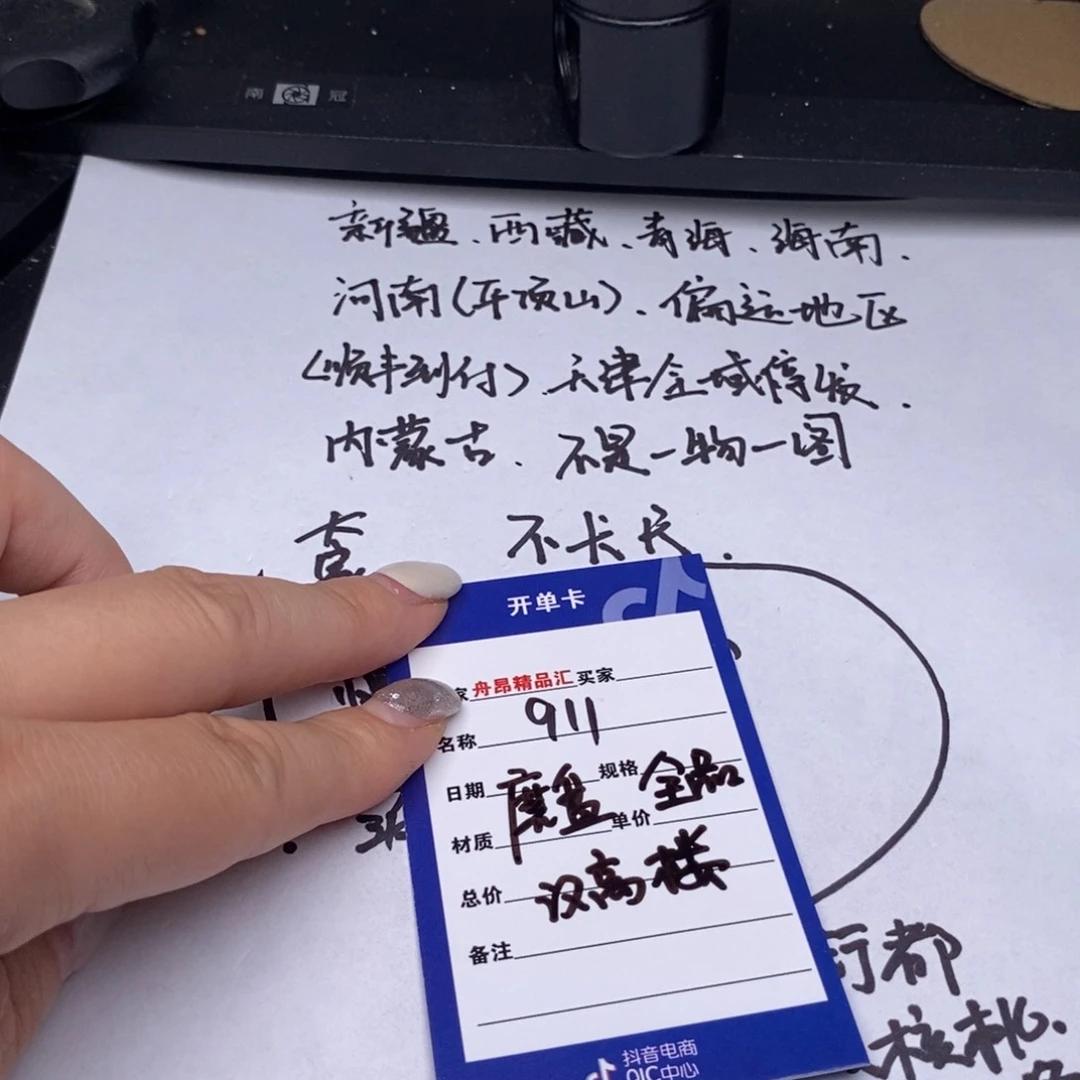 南 冠
新疆、西藏、青海、海南、
河南(平顶山)、偏运地区
(顺丰到付)、天津全域停发、
内蒙古、不是一物一图
不卡尺、
开单卡
家舟昂精品汇买家
名称 911
日期 规格 全品
材质 单价
总价 汉高楼
备注
抖音电商
QIC中心
都
核桃、